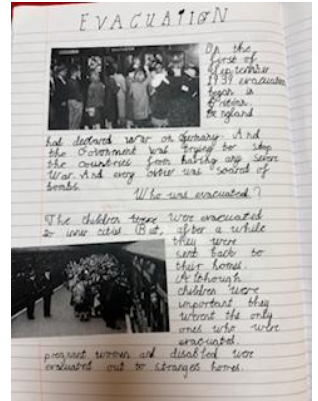 EVACUATION
On the
first of
September
1939 evacuation
began in
Britain.
England
had declared war on Germany. And
the Government was trying to stop
the countries from having any severe
War. And every other was scared of
bombs.
Who was evacuated?
The children were were evacuated
to inner cities But, after a while
they were
sent back to
their homes.
Although
children were
important they
werent the only
ones who were
evacuated.
pregnant women and disabled were
evacuated out to stranges homes.